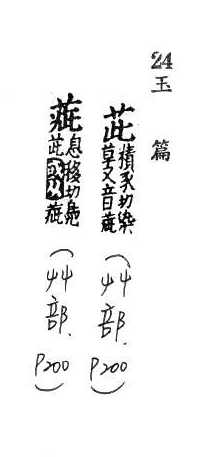 24玉篇
茈積豕切染
草又音疵
(艸部. P200)
息移切鳧
茈
(艸部. P200)